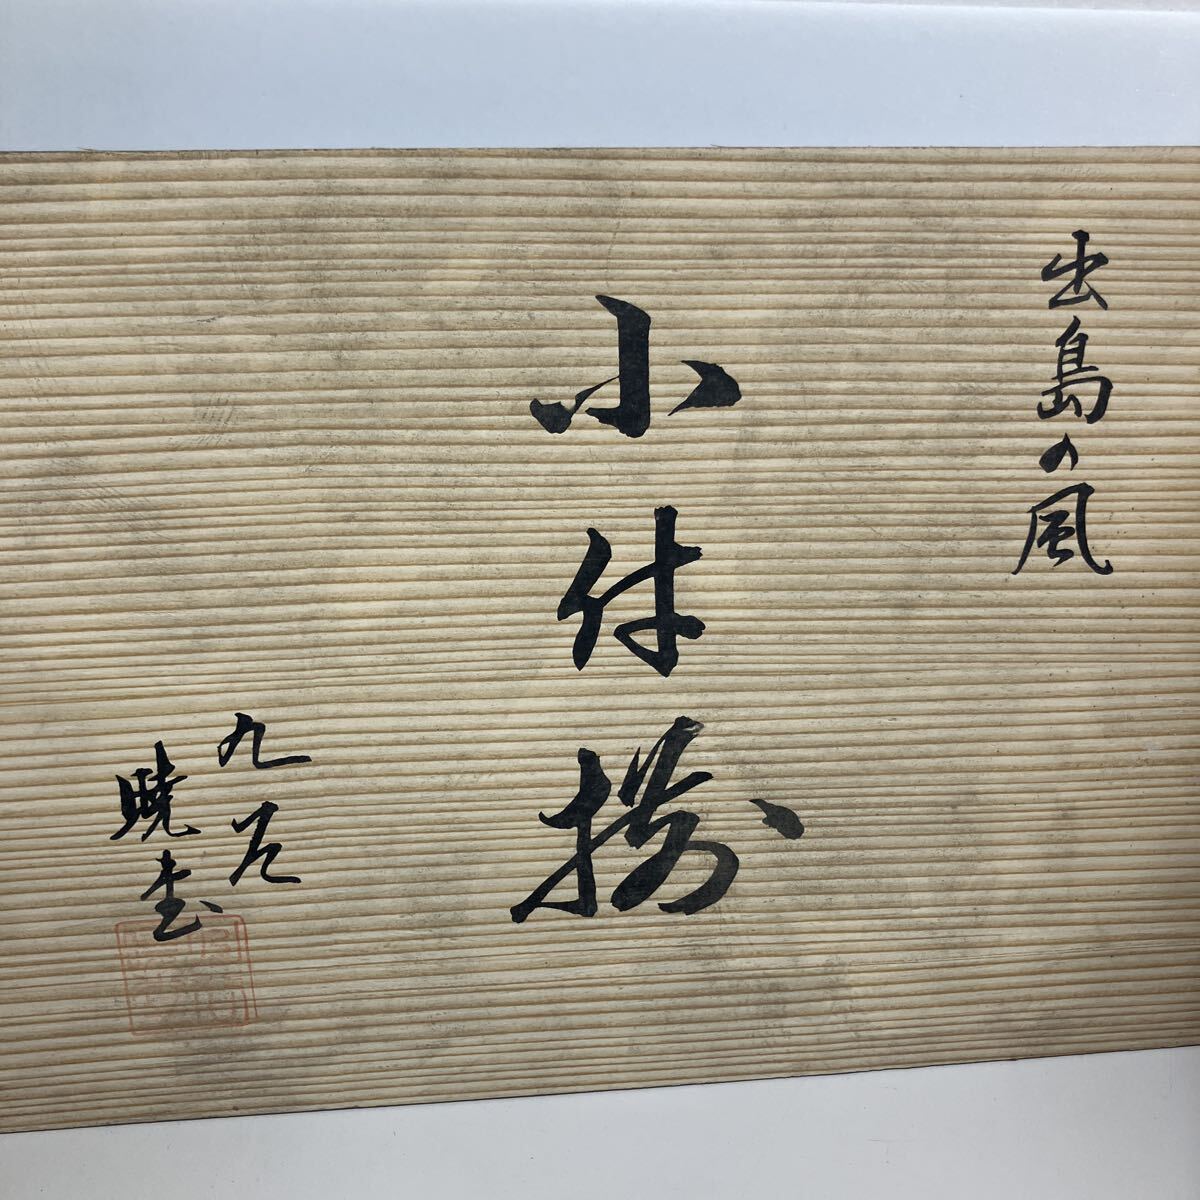 出島の風
小付揃
九谷
暁